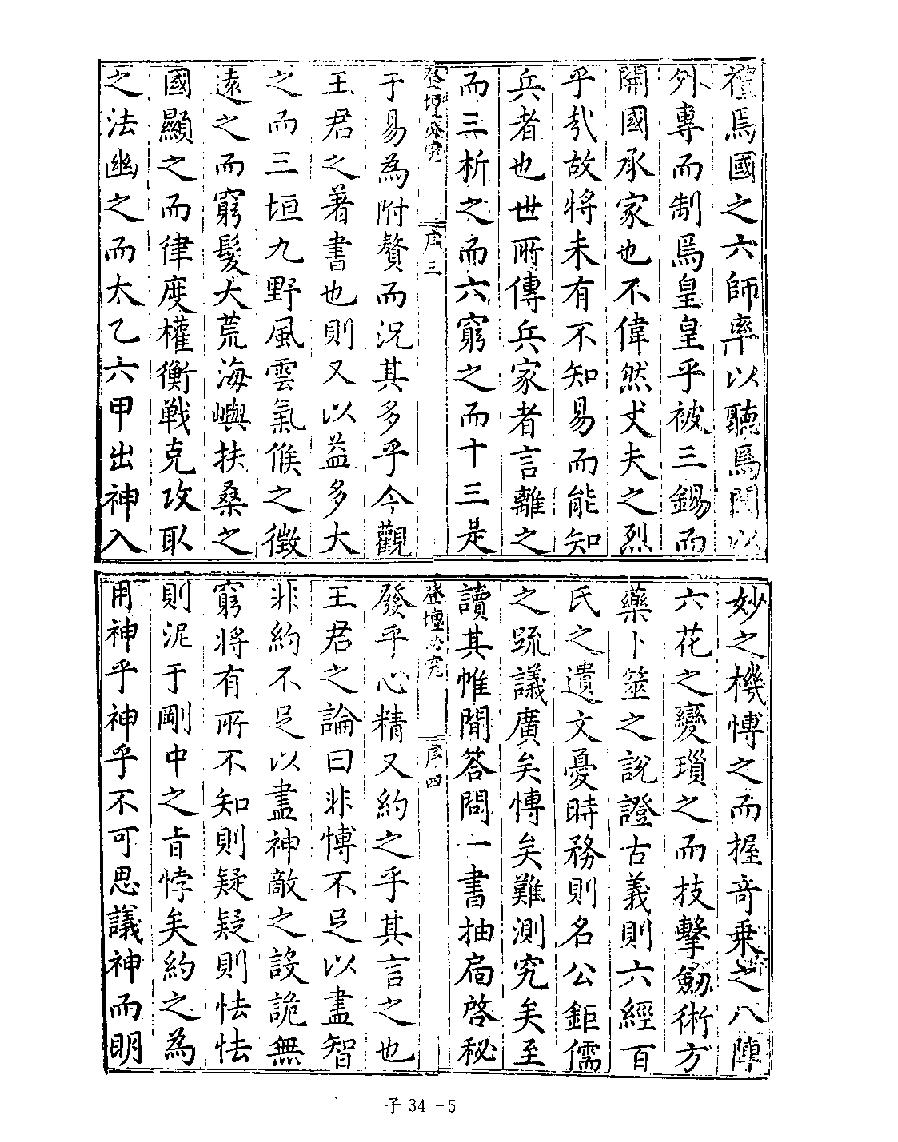 禮焉國之六師率以聽焉閫以
外專而制焉皇皇乎被三錫而
開國承家也不偉然丈夫之烈
乎哉故將未有不知易而能知
兵者也世所傳兵家者言離之
而三析之而六窮之而十三是
登壇必究 序 三
于易為附贅而況其多乎今觀
王君之著書也則又以益多大
之而三垣九野風雲氣候之徵
遠之而窮髮大荒海嶼扶桑之
國顯之而律度權衡戰克攻取
之法幽之而太乙六甲出神入
妙之機慱之而握奇乗之八陣
六花之變瑣之而技擊劒術方
藥卜筮之說證古義則六經百
氏之遺文憂時務則名公鉅儒
之䟽議廣矣慱矣難測究矣至
讀其帷閫答問一書抽扃啓秘
登壇必究 序 四
發乎心精又約之乎其言之也
王君之論曰非慱不足以盡智
非約不足以盡神敵之設詭無
窮將有所不知則疑疑則怯怯
則泥于剛中之旨悖矣約之為
用神乎神乎不可思議神而明
子 34 - 5